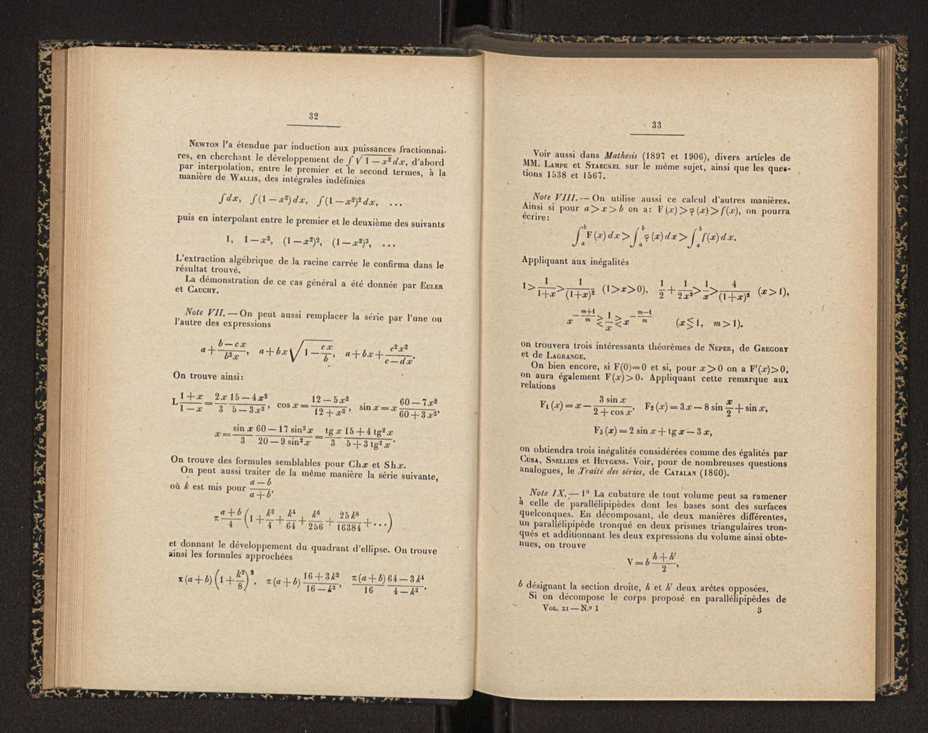 32
Newton l'a étendue par induction aux puissances fractionnai-
res, en cherchant le développement de ∫√(1 — x²) dx, d'abord
par interpolation, entre le premier et le second termes, à la
manière de Wallis, des intégrales indéfinies
∫dx, ∫(1—x²) dx, ∫(1—x²)² dx, ...
puis en interpolant entre le premier et le deuxième des suivants
1, 1—x², (1—x²)², (1—x²)³, ...
L'extraction algébrique de la racine carrée le confirma dans le
résultat trouvé.
La démonstration de ce cas général a été donnée par Euler
et Cauchy.
Note VII.— On peut aussi remplacer la série par l'une ou
l'autre des expressions
a + (b—cx)/(b²x), a + bx √(1 — cx/b), a + bx + c²x²/(c—dx).
On trouve ainsi:
L (1+x)/(1—x) = 2x/3 (15—4x²)/(5—3x²), cos x = (12—5x²)/(12+x²), sin x = x (60—7x²)/(60+3x²),
x = sin x/3 (60—17 sin² x)/(20—9 sin² x) = tg x/3 (15+4 tg² x)/(5+3 tg² x).
On trouve des formules semblables pour Ch x et Sh x.
On peut aussi traiter de la même manière la série suivante,
où k est mis pour (a—b)/(a+b),
π (a+b)/4 (1 + k²/4 + k⁴/64 + k⁶/256 + 25k⁸/16384 + ...)
et donnant le développement du quadrant d'ellipse. On trouve
ainsi les formules approchées
π (a+b) (1 + k²/8)², π (a+b) (16+3k²)/(16—k²), π(a+b)/16 (64—3k⁴)/(4—k²).
33
Voir aussi dans Mathesis (1897 et 1906), divers articles de
MM. Lampe et Staeckel sur le même sujet, ainsi que les ques-
tions 1538 et 1567.
Note VIII.— On utilise aussi ce calcul d'autres manières.
Ainsi si pour a > x > b on a: F(x) > φ(x) > f(x), on pourra
écrire:
∫ₐᵇ F(x) dx > ∫ₐᵇ φ(x) dx > ∫ₐᵇ f(x) dx.
Appliquant aux inégalités
1 > 1/(1+x) > 1/(1+x)² (1>x>0), 1/2 + 1/(2x²) > 1/x > 4/(1+x)² (x>1),
x^(—(m+1)/m) ≷ 1/x ≷ x^(—(m—1)/m) (x≶1, m>1).
on trouvera trois intéressants théorèmes de Neper, de Gregory
et de Lagrange.
On bien encore, si F(0)=0 et si, pour x>0 on a F'(x)>0,
on aura également F(x)>0. Appliquant cette remarque aux
relations
F₁(x) = x — 3 sin x/(2 + cos x), F₂(x) = 3x — 8 sin x/2 + sin x,
F₃(x) = 2 sin x + tg x — 3x,
on obtiendra trois inégalités considérées comme des égalités par
Cusa, Snellius et Huygens. Voir, pour de nombreuses questions
analogues, le Traité des séries, de Catalan (1860).
Note IX.— 1º La cubature de tout volume peut sa ramener
à celle de parallélipipèdes dont les bases sont des surfaces
quelconques. En décomposant, de deux manières différentes,
un parallélipipède tronqué en deux prismes triangulaires tron-
qués et additionnant les deux expressions du volume ainsi obte-
nues, on trouve
V = b (h+h')/2,
b désignant la section droite, h et h' deux arêtes opposées.
Si on décompose le corps proposé en parallélipipèdes de
Vol. xi — N.º 1 3